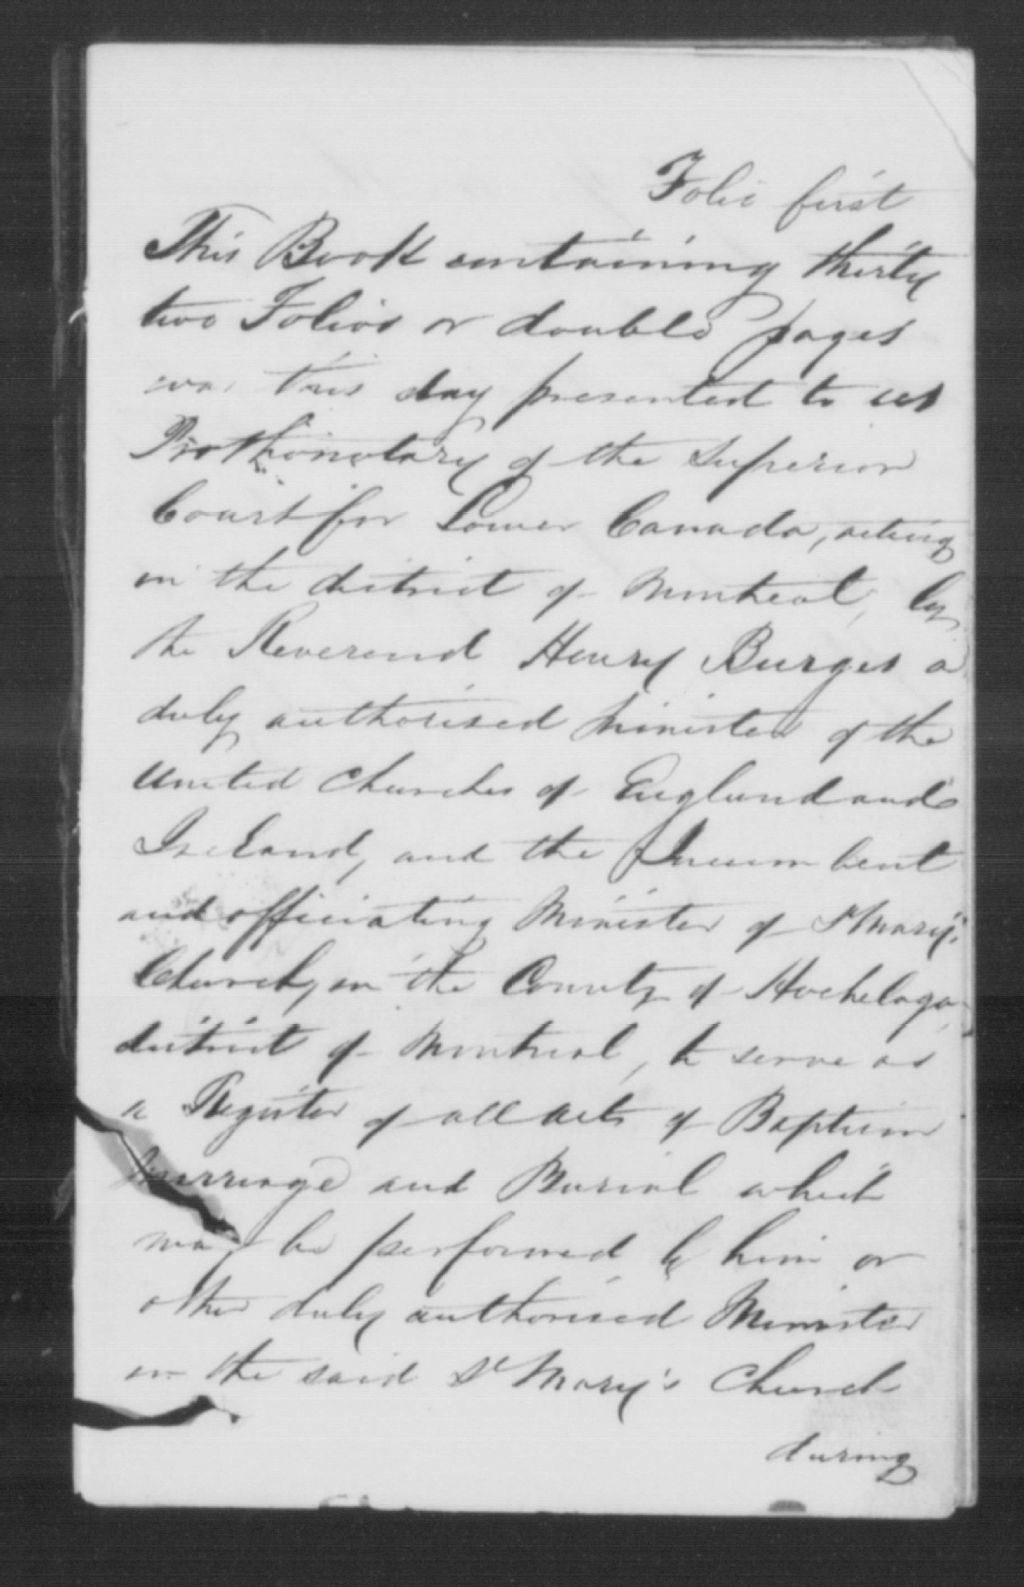 Folio first
This Book containing thirty
two Folios or double pages
was this day presented to us
Prothonotary of the Superior
Court for Lower Canada, acting
in the district of Montreal, by
the Reverend Henry Burges a
duly authorised Minister of the
United Churches of England and
Ireland, and the Incumbent
and officiating Minister of St Mary's
Church, in the County of Hochelaga
district of Montreal, to serve as
a Register of all acts of Baptism
Marriage and Burial which
may be performed by him or
other duly authorised Minister
in the said St Mary's Church
during